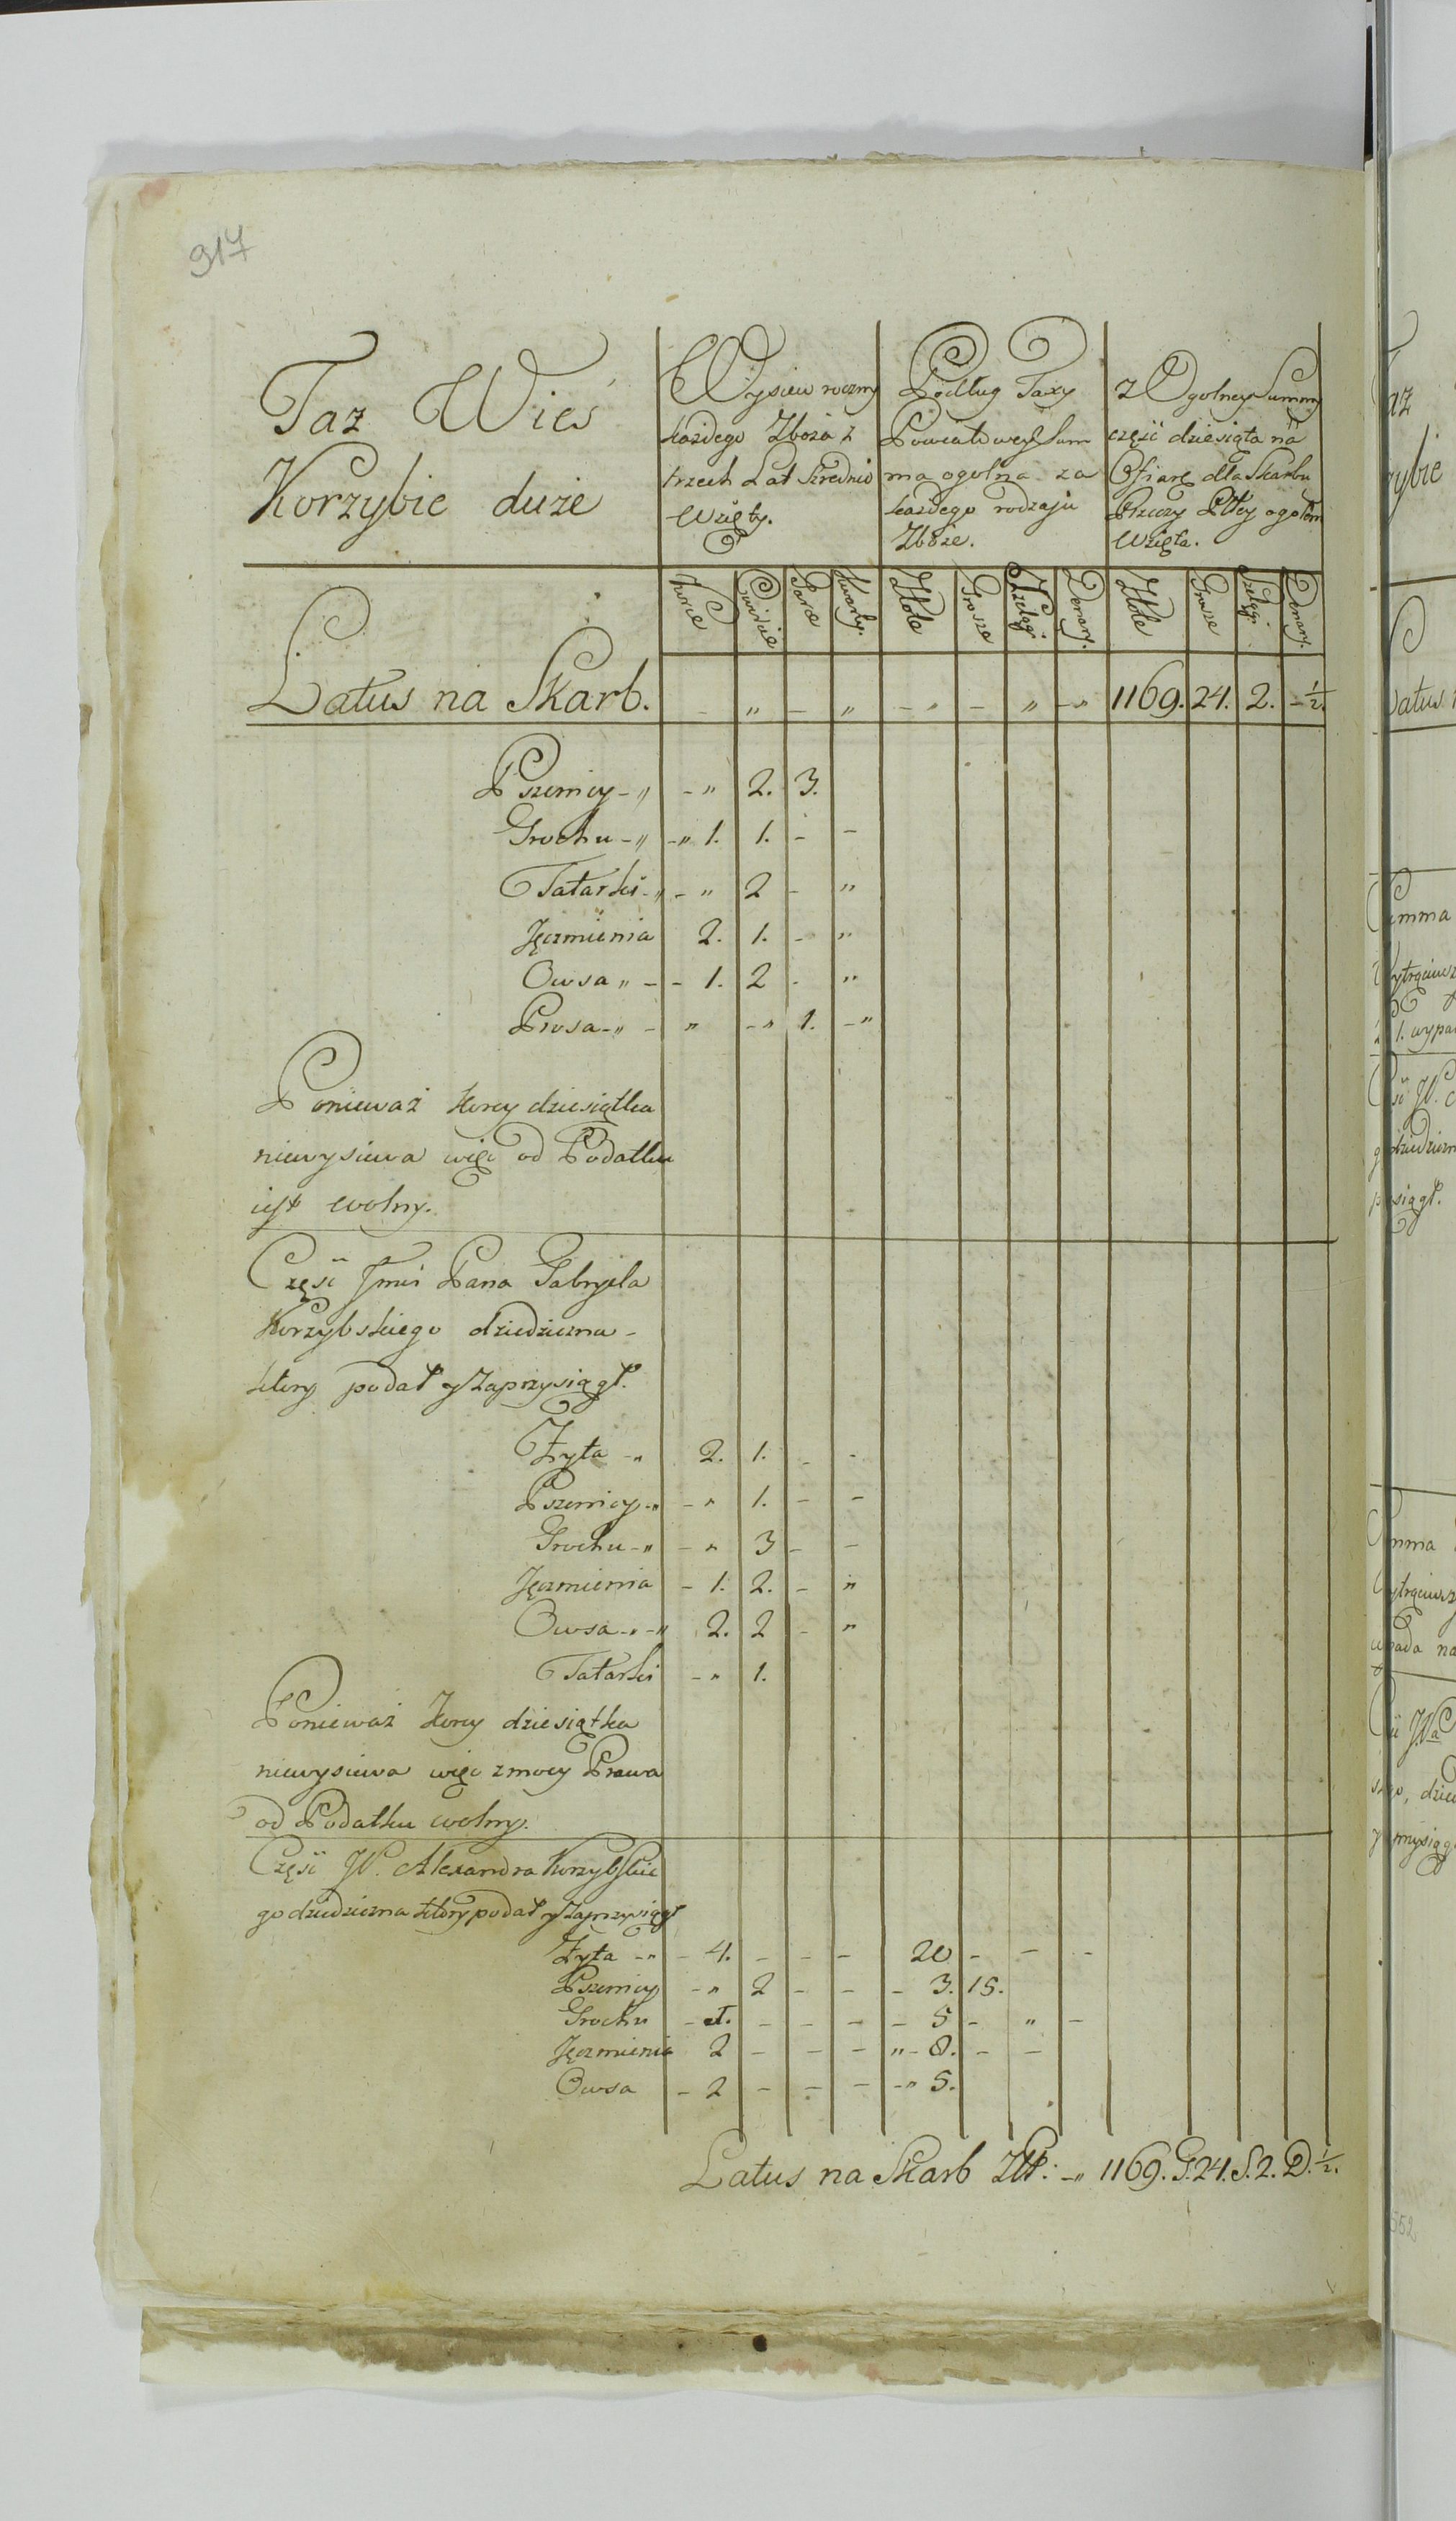 917
Taz Wieś
Korzybie duże
Wysiew roczny
każdego Zboża z
trzech Lat średnio
Wzięty.
Podług Taxy
Powiatowey Sum
ma ogolna za
każdego rodzaju
Zboże.
Z Ogolney Summy
część dziesiąta na
Ofiarę dla Skarbu
Rzeczy Pltey ogołem
Wzięta.
Korce Cwircie Garce Kwarty. Złote Grosze Szelągi Denary. Złote Grosze Szelągi Denary.
Latus na Skarb. - " - " - " - " - " 1169. 24. 2. - 1/2.
Pszenicy - " - " 2. 3.
Grochu - " - " 1. 1. - -
Tatarki - " - " 2 - "
Jęczmienia 2. 1. - "
Owsa " - - 1. 2 - "
Prosa - " - " - " 1. - "
Ponieważ korcy dziesiątka
niewysiewa więc od Podatku
iest wolny.
Część Jmci Pana Gabryela
Korzybskiego dziedziczna -
ktory podał y Zaprzysiągł.
Zyta - " 2. 1. - -
Pszenicy - " - " 1. - -
Grochu - " - " 3 - -
Jęczmienia - 1. 2. - "
Owsa - " - " 2. 2 - "
Tatarki - " 1.
Ponieważ korcy dziesiątka
niewysiewa więc z mocy Prawa
od Podatku wolny.
Część W. Alexandra Korzybskie
go dziedziczna ktory podał y Zaprzysiągł
Zyta - " - 4. - - - 20 - - -
Pszenicy - " 2 - - - 3. 15.
Grochu - 1. - - - - 5 - " -
Jęczmienia 2 - - - " - 8. - -
Owsa - 2 - - - - " 5.
Latus na Skarb Złł: - " 1169. G. 24. S. 2. D. 1/2.